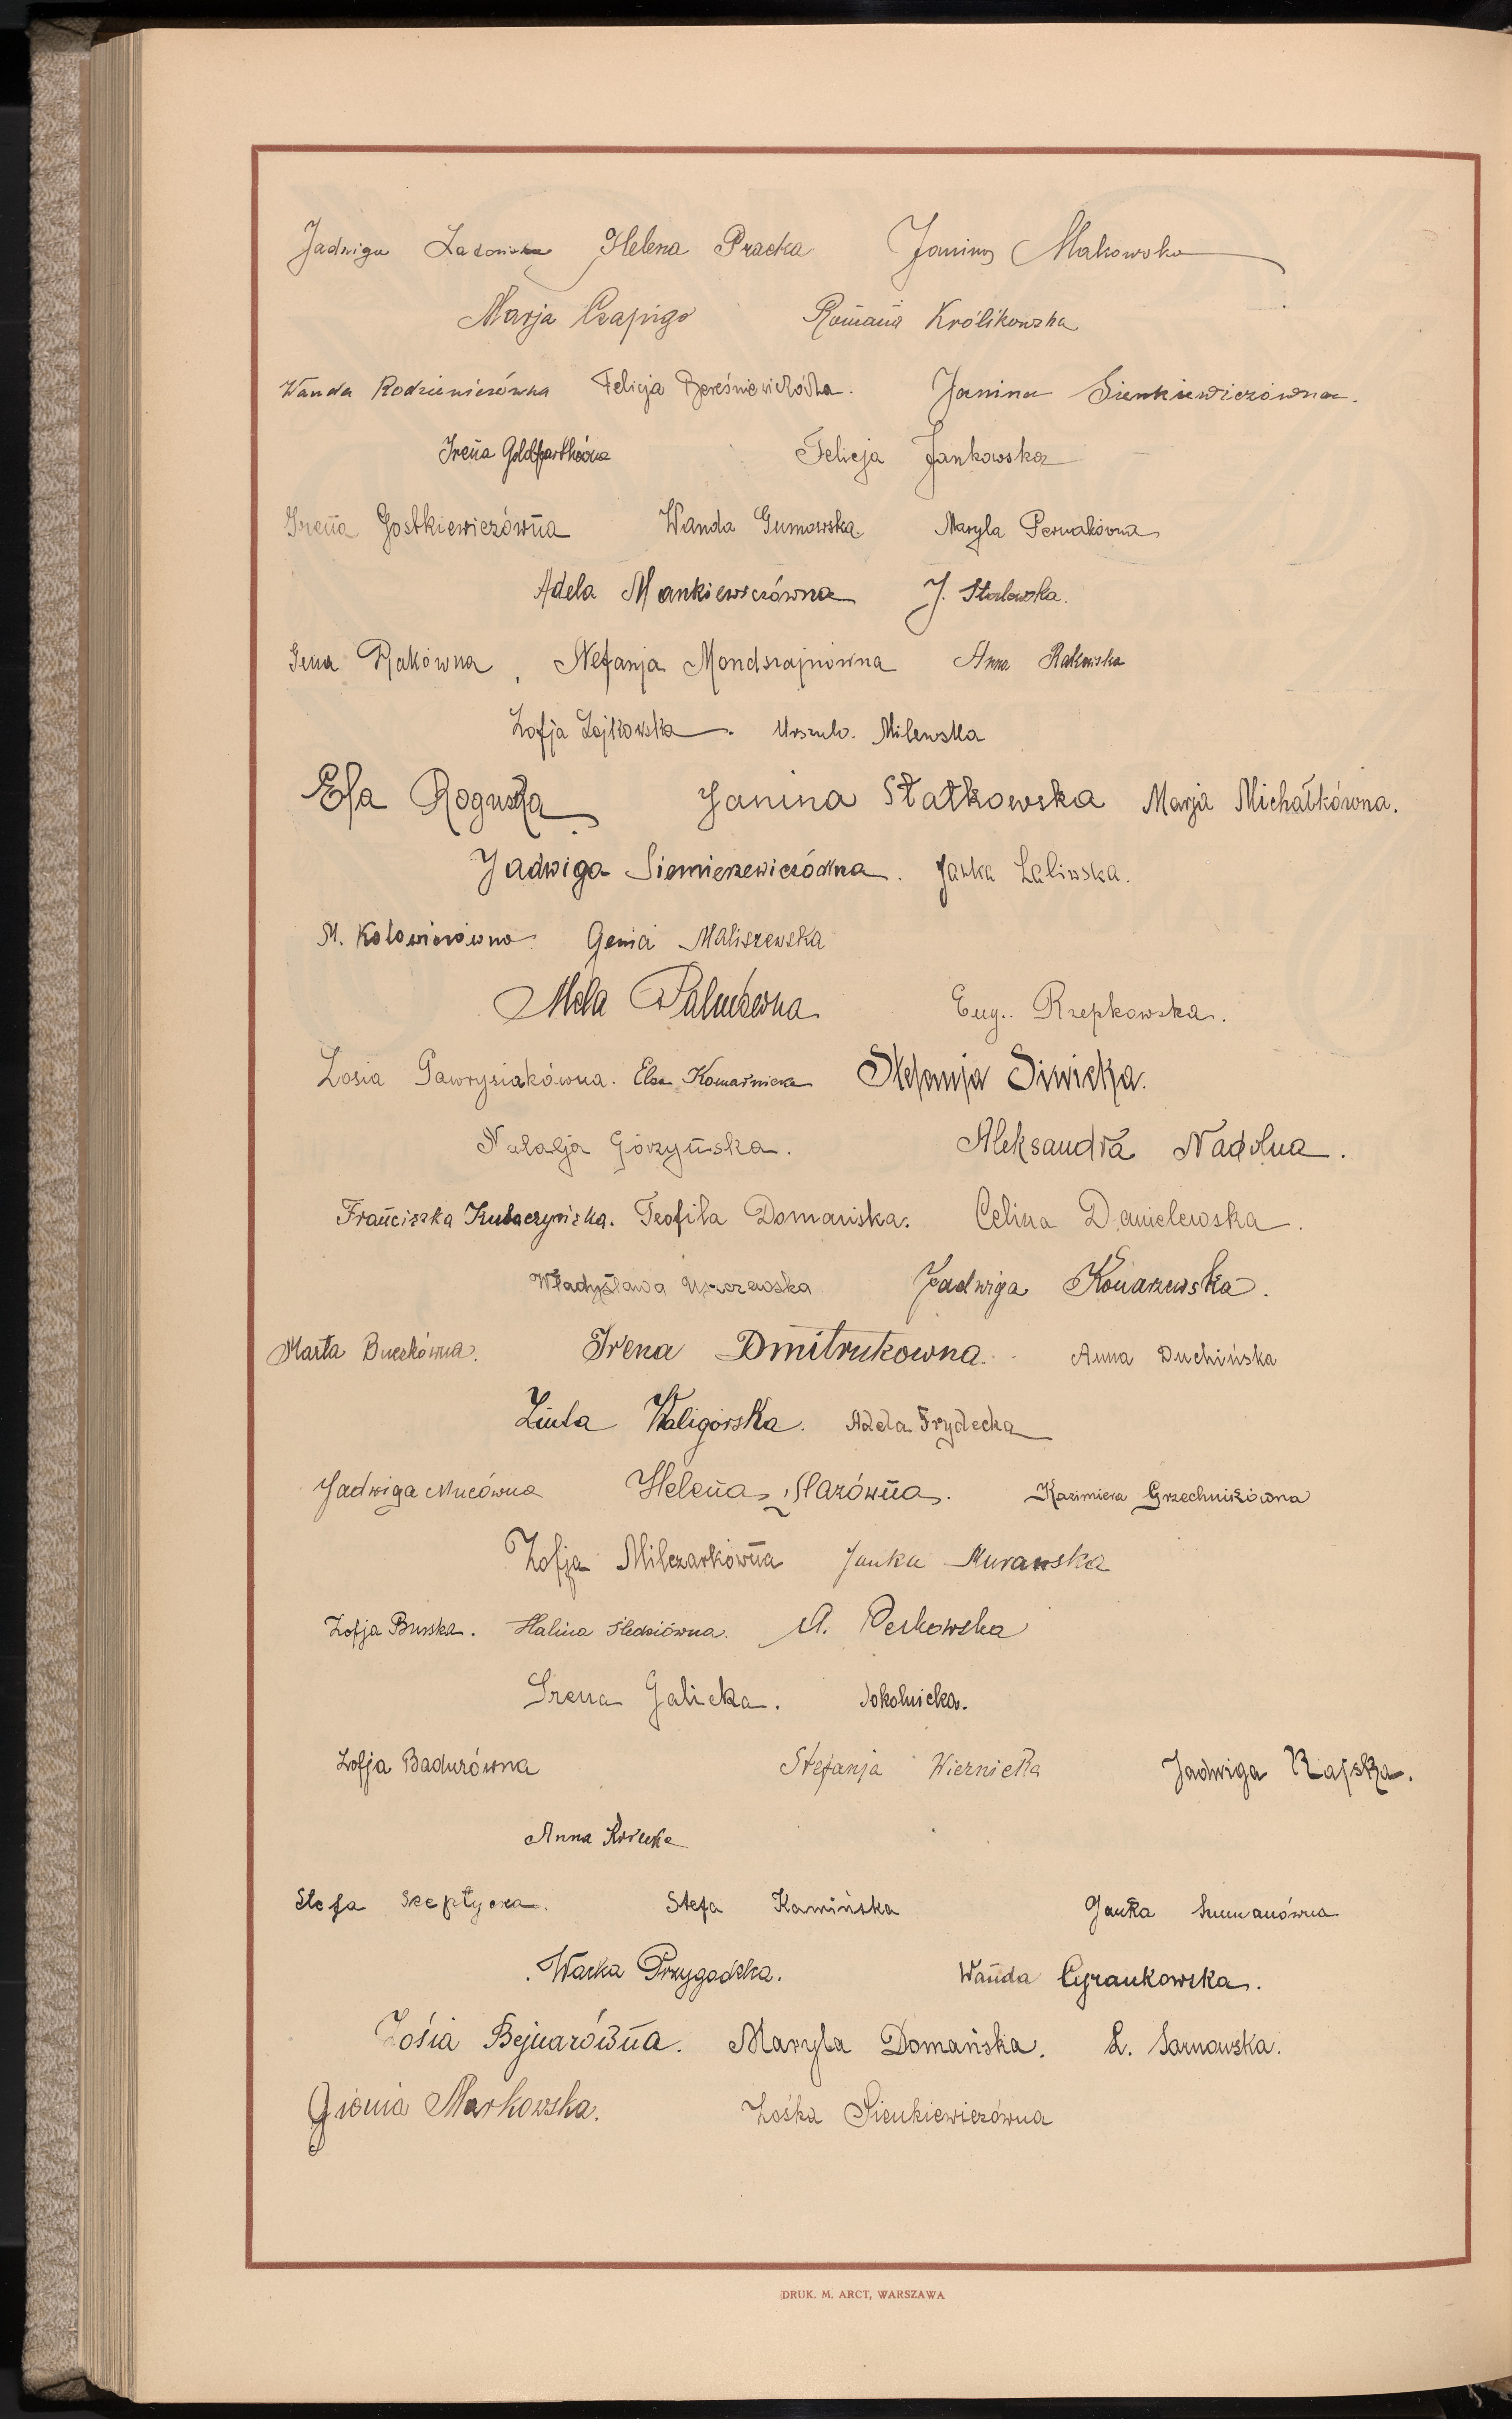 Jadwiga Helena Pracka Janina Makowska
Marja Czapigo Romana Królikowska
Wanda Rodziewiczówna Felicja Bereśniewiczówna. Janina Sienkiewiczówna.
Irena Felicja Jankowska
Irena Gostkiewiczówna Wanda Gumowska. Maryla Pernakówna
Adela Mankiewiczówna J. Stalewska.
Rakówna, Nefanja Mondszajnówna Anna Rakowska
Zofja Zajkowska. Urszula Milewska
Efa Roguska Janina Statkowska Marja Michałkówna.
Jadwiga Siemieszewiczówna. Janka Laliwska.
M. Kolowiczówna Genia Maliszewska
Mela Eug. Rzepkowska.
Zosia Gawrysiakówna. Elza Komarnicka Stefanja Siwicka.
Natalja Górzyńska. Aleksandra Nadolna.
Franciszka Teofila Domańska. Celina Danielewska.
Władysława Jadwiga Konarzewska.
Marta Buczkówna. Irena Dmitrukowna. Anna Duchińska
Ziuta Kaligórska. Adela Frydecka
Jadwiga Mucówna Helena Mazówna. Kazimiera Grzechnikówna
Zofja Milczarkówna Janka Murawska
Zofja Busska. Halina Śledziówna. A. Perkowska
Irena Galicka. Sokolnicka.
Zofja Badurówna Stefanja Wiernicka Jadwiga Rajska.
Anna
Stefa Szeptycka. Stefa Kamińska Janka Szumanówna
Wacka Przygodzka. Wanda Cyrankowska.
Zosia Bejnarówna. Maryla Domańska. L. Sarnowska.
Gienia Markowska. Zośka Sienkiewiczówna
DRUK. M. ARCT, WARSZAWA